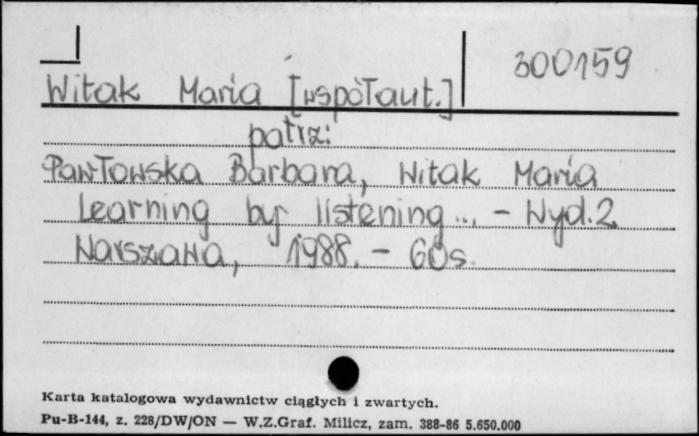 300159
Witak Maria [współaut.]
patrz:
Pawłowska Barbara, Witak Maria
Learning by listening... - Wyd.2
Warszawa, 1988. - 60s.
Karta katalogowa wydawnictw ciągłych i zwartych.
Pu-B-144, z. 228/DW/ON — W.Z.Graf. Milicz, zam. 388-86 5.650.000